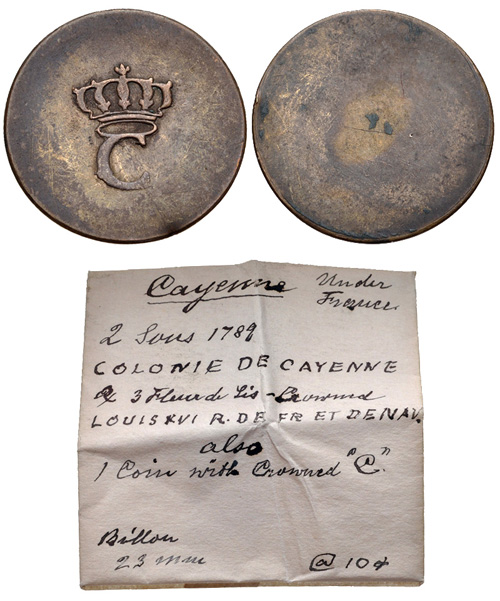 C
Cayenne Under
France.
2 Sous 1789
COLONIE DE CAYENNE
& 3 Fleur de Lis - Crowned
LOUIS XVI R. DE FR ET DE NAV.
also
1 Coin with Crowned "C".
Billon
23 mm @ 10¢